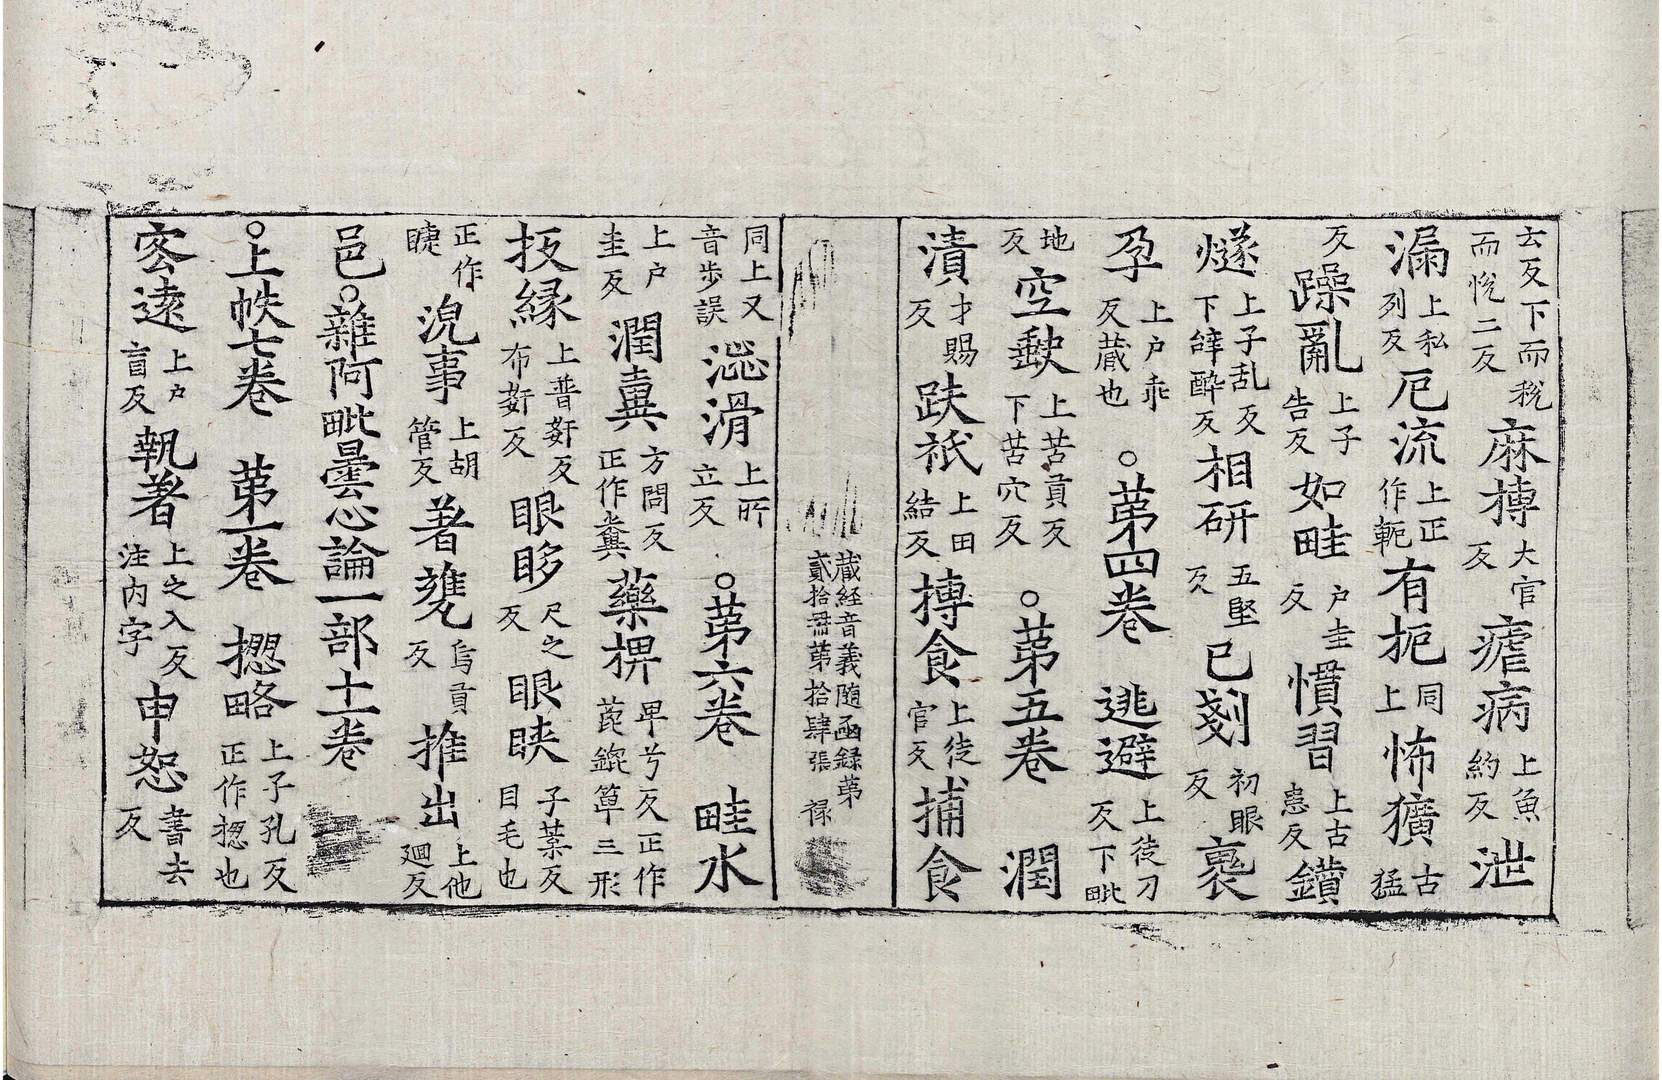 去反下而稅而恱二反麻摶大官反瘧病上魚約反泄
漏上私列反厄流上正作軛有扼同上怖獷古猛
反躁亂上子告反如畦户圭反慣習上古患反鑽
燧上子乱反下辝醉反相研五堅反已剗初眼反裹
孕上户乖反蔵也○苐四卷逃避上徒刀反下毗
地反空㱿上苦貢反下苦穴反○苐五卷潤
漬才賜反趺祇上田結反摶食上徒官反捕食
蔵經音義隨函録苐貳拾苐拾肆張禄
同上又音步誤澁滑上所立反○苐六卷畦水
上户圭反潤㠱方問反正作糞藥椑卑兮反正作蓖錕箄三形
扳緣上普姧反布姧反眼眵尺之反眼睫子葉反目毛也
正作睫涀事上胡管反著甕烏貢反推出上他迴反
邑○雜阿毗曇心論一部十一卷
○上帙七卷苐一卷揔略上子孔反正作揔也
宻遠上户盲反執著上之入反注内字申恕書去反